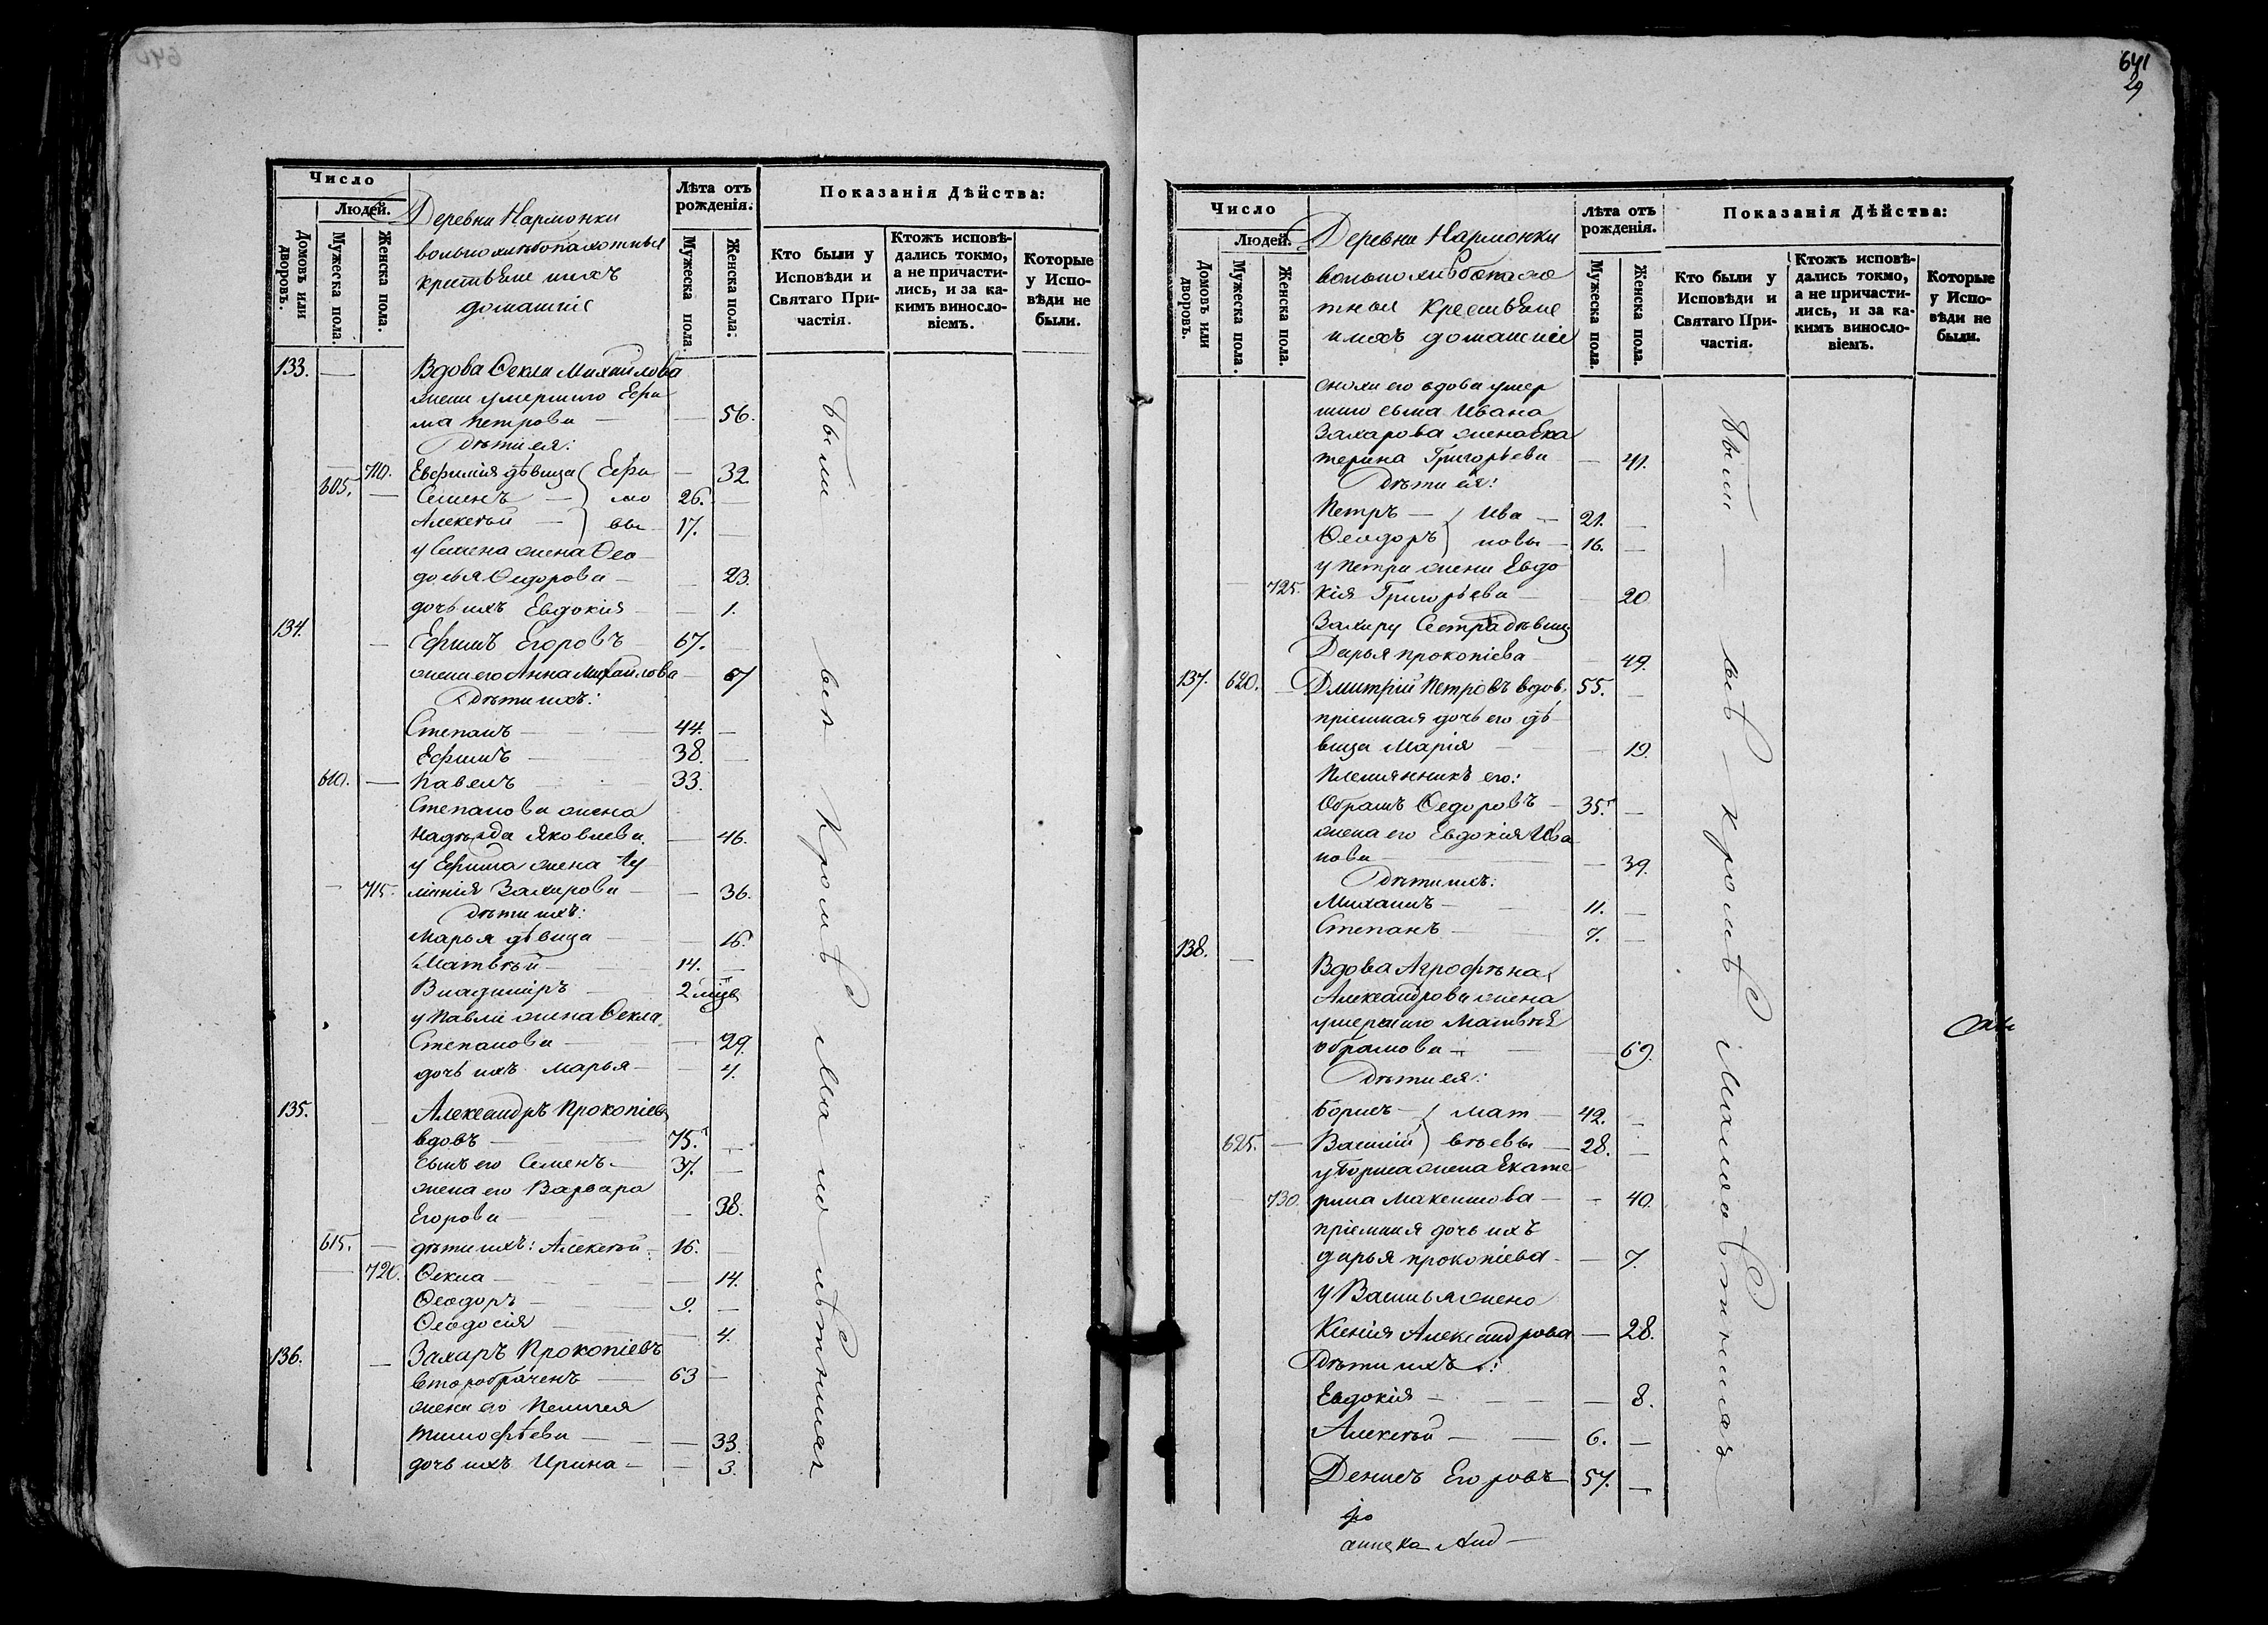 641
29
Число
Людей.
Домовъ или дворовъ.
Мужеска пола.
Женска пола.
Деревни Нармонки
вольнохлѣбопахотныя
крестьяне ихъ
домашніе
Лѣта отъ рожденія.
Мужеска пола.
Женска пола:
Показанія Дѣйства:
Кто были у Исповѣди и Святаго Причастія.
Ктожъ исповѣдались токмо, а не причастились, и за какимъ винословіемъ.
Которые у Исповѣди не были.
133. — Вдова Ѳекла Михайлова
жена умершаго Ефи
ма Петрова — — 56.
Дѣти ея:
— 710. Евфимія дѣвица Ефи — 32
605. — Семенъ — мо 26. —
Алексѣй — вы 17. —
у Семена жена Ѳео
досья Ѳедорова — — 23.
дочь ихъ Евдокія — — 1.
134. — Ефимъ Егоровъ — 67. —
жена его Анна Михайлова — 67
Дѣти ихъ:
Степанъ — 44. —
Ефимъ — 38. —
610. — Павелъ — 33.
Степанова жена
Надежда Яковлева — 46.
у Ефима жена Іу
— 715. ліанія Захарова — — 36.
Дѣти ихъ:
Марья дѣвица — — 16.
Матвѣй — 14. —
Владиміръ — 2 мцъ
у Павла жена Ѳекла
Степанова — — 29.
дочь ихъ Марья — — 4.
135. — Александръ Прокопіевъ
вдовъ — 75. —
сынъ его Семенъ — 37. —
жена его Варвара
Егорова — — 38.
615. — дѣти ихъ: Алексѣй — 16. —
— 720. Ѳекла — — 14.
Ѳеодоръ — 9. —
Ѳеодосія — — 4.
136. — Захаръ Прокопіевъ
второбраченъ — 63 —
жена его Пелагея
Тимофѣева — — 33.
дочь ихъ Ирина — — 3.
были всѣ кромѣ малолѣтнихъ
Число
Людей.
Домовъ или дворовъ.
Мужеска пола.
Женска пола.
Деревни Нармонки
вольнохлѣбопахо
тныя крестьяне
ихъ домашніе
Лѣта отъ рожденія.
Мужеска пола.
Женска пола.
Показанія Дѣйства:
Кто были у Исповѣди и Святаго Причастія.
Ктожъ исповѣдались токмо, а не причастились, и за какимъ винословіемъ.
Которые у Исповѣди не были.
сноха его вдова умер
шаго сына Ивана
Захарова жена Ека
терина Григорьева — 41.
Дѣти ея:
Петръ — Ива — 21. —
Ѳеодоръ новы — 16. —
у Петра жена Евдо
— 725. кія Григорьева — — 20
Захару сестра дѣвица
Дарья Прокопіева — 49.
137. 620. — Дмитрій Петровъ вдов. 55. —
пріемная дочь его дѣ
вица Марія — — 19.
Племянникъ его:
Обрамъ Ѳедоровъ — 35. —
жена его Евдокія Ива
нова — — 39.
Дѣти ихъ:
Михаилъ — 11. —
Степанъ — 7. —
138. — Вдова Агрофѣна
Александрова жена
умершаго Матвѣя
Обрамова — — 69.
Дѣти ея:
Борисъ — Мат — 42. —
625. — Василій вѣевы — 28. —
у Бориса жена Екате
— 730. рина Максимова — — 40.
пріемная дочь ихъ
дарья прокопіева — — 7.
у Василья жена
Ксенія Александрова — 28.
Дѣти ихъ:
Евдокія — — 8.
Алексѣй — 6. —
Денисъ Егоровъ 57. —
были — всѣ — кромѣ малолѣтнихъ